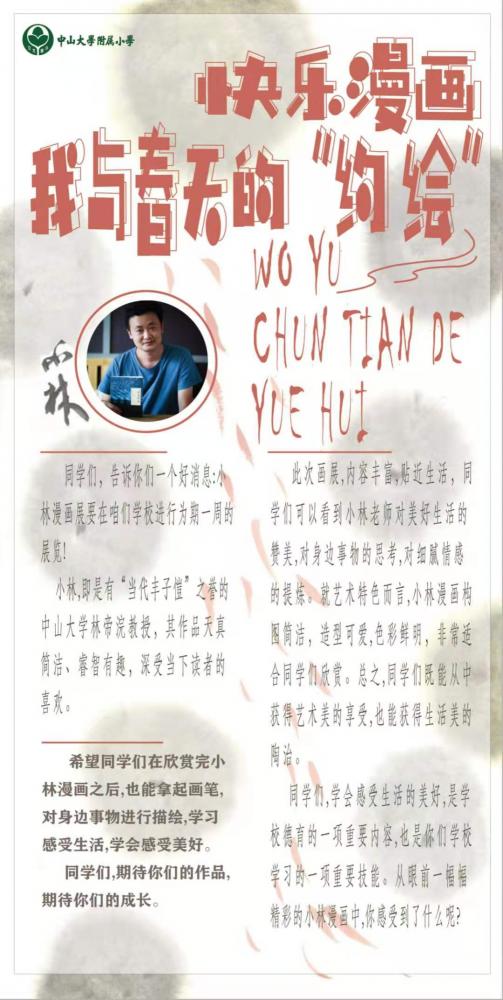 中山大学附属小学
快乐漫画
我与春天的“约绘”
WO YU
CHUN TIAN DE
YUE HUI
小林
同学们，告诉你们一个好消息:小
林漫画展要在咱们学校进行为期一周的
展览!
小林,即是有“当代丰子恺”之誉的
中山大学林帝浣教授，其作品天真
简洁、睿智有趣，深受当下读者的
喜欢。
希望同学们在欣赏完小
林漫画之后,也能拿起画笔,
对身边事物进行描绘,学习
感受生活,学会感受美好。
同学们,期待你们的作品,
期待你们的成长。
此次画展,内容丰富,贴近生活，同
学们可以看到小林老师对美好生活的
赞美,对身边事物的思考,对细腻情感
的提炼。就艺术特色而言,小林漫画构
图简洁，造型可爱,色彩鲜明，非常适
合同学们欣赏。总之,同学们既能从中
获得艺术美的享受,也能获得生活美的
陶冶。
同学们,学会感受生活的美好,是学
校德育的一项重要内容,也是你们学校
学习的一项重要技能。从眼前一幅幅
精彩的小林漫画中,你感受到了什么呢?